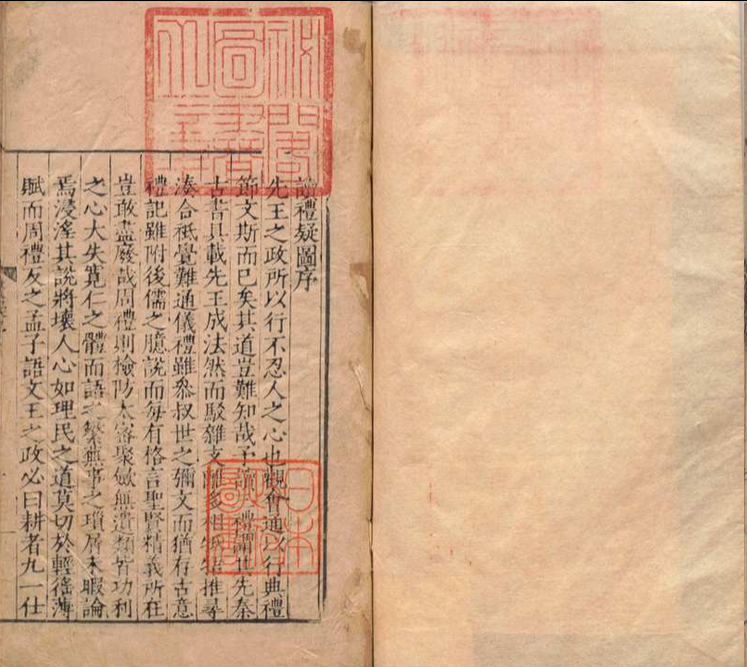 讀禮疑圖序
先王之政所以行不忍人之心也觀會通以行典禮
節文斯而已矣其道豈難知哉予讀禮謂其先秦
古書具載先王成法然而駁雜支離多相推尋
湊合祗覺難通儀禮雖叅叔世之彌文而猶存古意
禮記雖附後儒之臆說而每有格言聖賢精義所在
豈敢盡廢哉周禮則檢防太密聚斂無遺類管功利
之心大失寬仁之體而語之繁無事之瑣屑未暇論
焉浸淫其說將壞人心如理民之道莫切於輕徭薄
賦而周禮反之孟子語文王之政必曰耕者九一仕
秘閣圖書之章
日本圖書